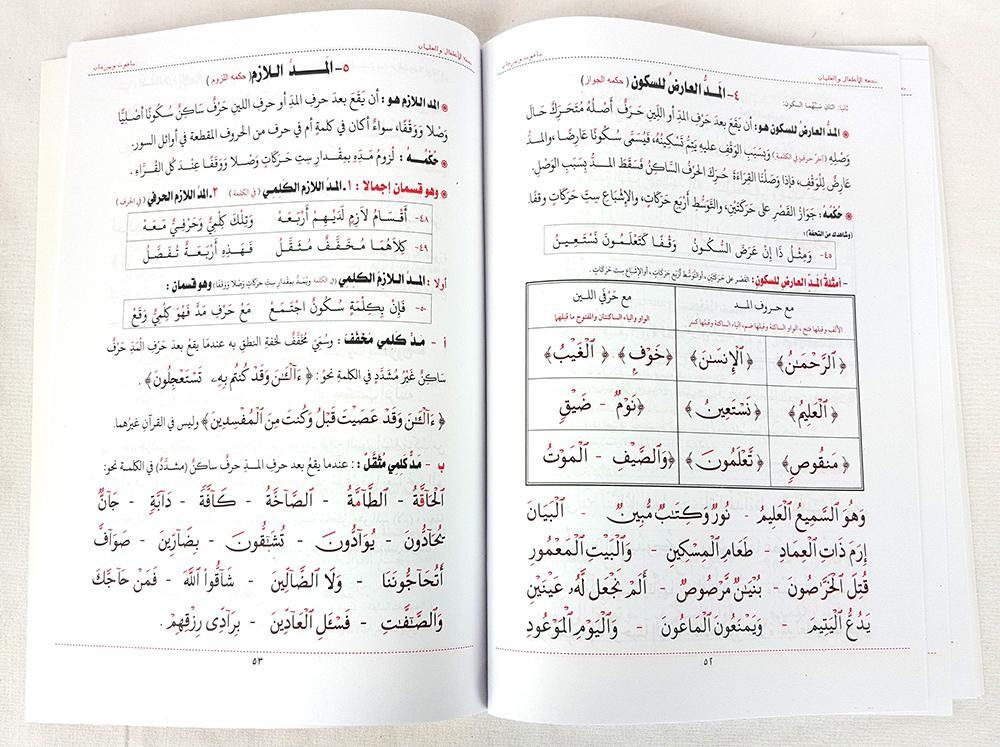 تحفة الأطفال والغلمان
ثانيا: الثاني سببُهما السكون:
٤- المَدُّ العارضُ للسكون (حكمه الجواز)
◉ المدُّ العارضُ للسكون هو: أن يَقَعَ بعدَ حَرْفِ المَدِّ أو اللِينِ حَرْفٌ أَصْلُهُ مُتَحَرِّكٌ حَالَ
وَصْلِهِ (آخرَ حرفٍ في الكلمة) وَبِسَبَبِ الوَقْفِ عليهِ يَتِمُّ تَسْكِينُهُ، فَيُسَمَّى سُكُونًا عَارِضًا، والمدُّ
عَارِضٌ لِلْوَقْفِ، فإذا وَصَلْنَا القِرَاءَةَ حُرِّكَ الحَرْفُ السَّاكِنُ فَسَقَطَ المَدُّ بِسَبَبِ الوَصْلِ.
◉ حُكْمُهُ: جَوَازُ القَصْرِ على حَرَكَتَيْنِ، والتَّوَسُّطِ أَرْبَعِ حَرَكَاتٍ، والإِشْبَاعِ سِتِّ حَرَكَاتٍ وقفًا.
(وشاهدك من التحفة):
٤٥- وَمِثْلُ ذَا إِنْ عَرَضَ السُّكُونُ وَقْفًا كَتَعْلَمُونَ نَسْتَعِينُ
- أمثلةُ المَدِّ العارضِ للسكونِ: القصر على حَرَكَتَيْنِ، أو التَّوَسُّطِ أربعَ حَرَكَاتٍ، أو الإشباعِ ستِّ حَرَكَاتٍ.
مع حروف المد
الألف وقبلها فتح، الواو الساكنة وقبلها ضم، الياء الساكنة وقبلها كسر
مع حَرْفَي اللين
الواو والياء الساكنتان والمفتوح ما قبلهما
﴿ٱلرَّحْمَـٰنُ﴾ ﴿ٱلْإِنسَـٰنَ﴾ ﴿خَوْفٍ﴾ . ﴿ٱلْغَيْبُ﴾
﴿ٱلْعَلِيمُ﴾ ﴿نَسْتَعِينُ﴾ نَوْمٌ - ضَيْقٍ
﴿مَنقُوصٍ﴾ ﴿تَعْلَمُونَ﴾ ﴿وَٱلصَّيْفِ - ٱلْمَوْتُ
وَهُوَ ٱلسَّمِيعُ ٱلْعَلِيمُ - نُورٌ وَكِتَـٰبٌ مُّبِينٌ - ٱلْبَيَانَ
إِرَمَ ذَاتِ ٱلْعِمَادِ - طَعَامِ ٱلْمِسْكِينِ - وَٱلْبَيْتِ ٱلْمَعْمُورِ
قُتِلَ ٱلْخَرَّٰصُونَ - بُنْيَـٰنٌ مَّرْصُوصٌ - أَلَمْ نَجْعَل لَّهُۥ عَيْنَيْنِ
يَدُعُّ ٱلْيَتِيمَ - وَيَمْنَعُونَ ٱلْمَاعُونَ - وَٱلْيَوْمِ ٱلْمَوْعُودِ
٥٢
تحفة الأطفال والغلمان
٥- المَدُّ اللازم (حكمه اللزوم)
◉ المد اللازم هو: أن يَقَعَ بعدَ حرفِ المدِّ أو حرفِ اللينِ حَرْفٌ سَاكِنٌ سُكُونًا أَصْلِيًّا
وَصْلًا وَوَقْفًا، سواءٌ أكان في كلمةٍ أم في حرف من الحروف المقطعة في أوائل السور.
◉ حُكْمُهُ: لُزُومُ مَدِّهِ بِمِقْدَارِ سِتِّ حَرَكَاتٍ وَصْلًا وَوَقْفًا عِنْدَ كُلِّ القُرَّاءِ.
◉ وهو قسمان إجمالا: ١- المَدُّ اللازم الكَلِمِي (في الكلمة) ٢- المَدُّ اللازم الحرفي (في الحرف)
٤٨- أَقْسَامُ لَازِمٍ لَدَيْهِمْ أَرْبَعَهْ وَتِلْكَ كِلْمِيٌّ وَحَرْفِيٌّ مَعَهْ
٤٩- كِلَاهُمَا مُخَفَّفٌ مُثَقَّلُ فَهَذِهِ أَرْبَعَةٌ تُفَصَّلُ
أولا: المَدُّ اللازم الكلمي (في الكلمة) ويُمَدُّ بمقدارِ ستِّ حَرَكَاتٍ وَصْلًا وَوَقْفًا؛ وهو قسمان:
٥٠- فَإِنْ بِكِلْمَةٍ سُكُونٌ اجْتَمَعْ مَعْ حَرْفِ مَدٍّ فَهْوَ كِلْمِيٌّ وَقَعْ
أ - مَدٌّ كَلِمي مُخَفَّفٌ: وسُمِّيَ مُخَفَّفٌ لخفةِ النطقِ به عندما يقعُ بعدَ حَرْفِ المَدِّ حَرْفٌ
سَاكِنٌ غَيْرُ مُشَدَّدٍ في الكلمةِ نحوَ: ﴿ءَآلْـَٔـٰنَ وَقَدْ كُنتُم بِهِۦ تَسْتَعْجِلُونَ﴾.
﴿ءَآلْـَٔـٰنَ وَقَدْ عَصَيْتَ قَبْلُ وَكُنتَ مِنَ ٱلْمُفْسِدِينَ﴾ وليس في القرآنِ غيرُهما.
ب - مَدٌّ كَلِمي مُثَقَّلٌ: عندما يقعُ بعد حرفِ المدِ حرفٌ ساكنٌ (مشدَّدٌ) في الكلمة نحو:
ٱلْحَآقَّةُ - ٱلطَّآمَّةُ - ٱلصَّآخَّةُ - كَآفَّةً - دَآبَّةٍ - جَآنٌّ
يُحَآدُّونَ - يُوَآدُّونَ - تُشَـٰٓقُّونَ - بِضَآرِّينَ - صَوَآفَّ
أَتُحَآجُّونَنَا - وَلَا ٱلضَّآلِّينَ - شَآقُّوا۟ ٱللَّهَ - فَمَنْ حَآجَّكَ
وَٱلصَّـٰٓفَّـٰتِ - فَسْـَٔلِ ٱلْعَآدِّينَ - بِرَآدِّى رِزْقِهِمْ .
٥٣